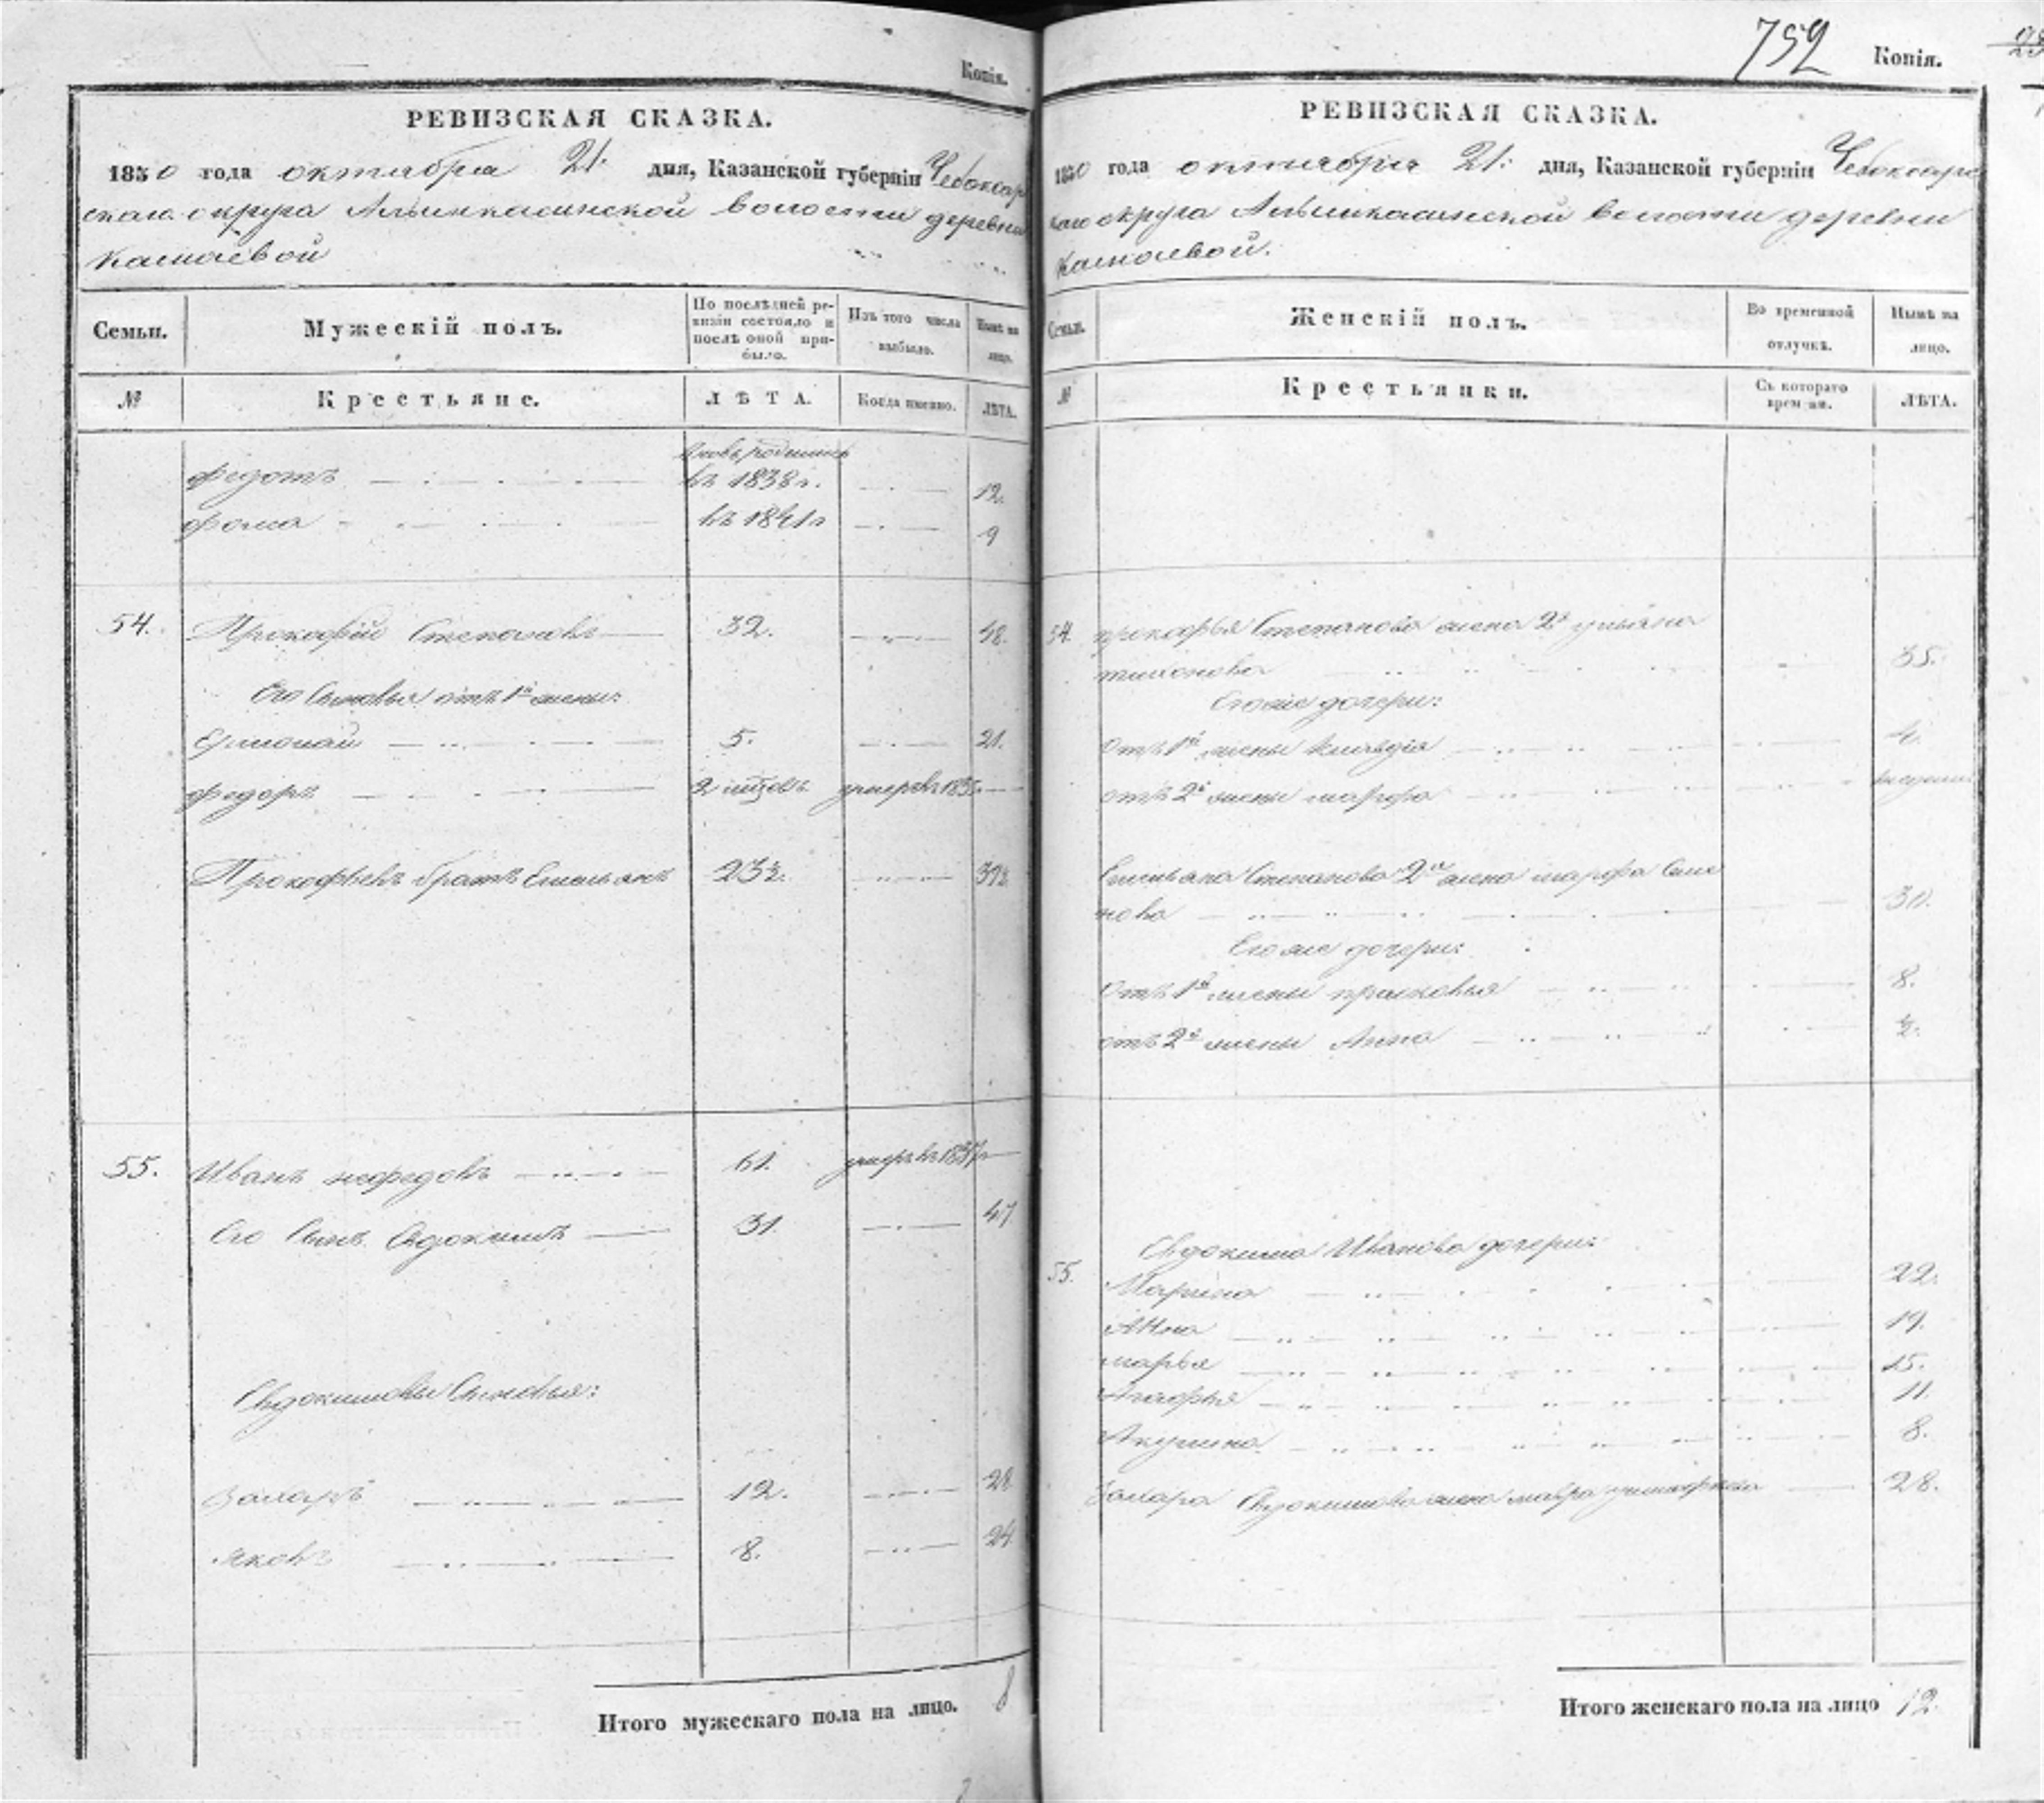 Копія.
РЕВИЗСКАЯ СКАЗКА.
1850 года октября 21. дня, Казанской губерніи Чебоксар
скаго округа Алымкасинской волости деревни
Камаевой
Семьи. Мужескій полъ. По послѣдней ре- Изъ того числа Нынѣ на
визіи состояло и выбыло. лицо.
послѣ оной при-
было.
№ Крестьяне. ЛѢТА. Когда именно. ЛѢТА.
вновь родились
Федотъ въ 1838 г. 12.
Фома въ 1841 г 9
54. Прокофій Степановъ 32. 48.
Его Сыновья отъ 1й жены:
5. 21.
Федоръ умеръ въ
Прокофьевъ братъ Емельянъ 23½. 39½.
55. Иванъ Нефедовъ 61. умеръ въ
Его Сынъ Евдокимъ 31. 47.
Евдокимовы Сыновья:
Захаръ 12. 28
Яковъ 8. 24
Итого мужескаго пола на лицо. 8
752 Копія.
РЕВИЗСКАЯ СКАЗКА.
1850 года октября 21. дня, Казанской губерніи Чебоксарс
каго округа Алымкасинской волости деревни
Камаевой.
Семьи. Женскій полъ. Во временной Нынѣ на
отлучкѣ. лицо.
№ Крестьянки. Съ котораго ЛѢТА.
времени.
54. Прокофья Степанова жена 2я Ульяна
Тихонова 35.
Его же дочери:
отъ 1й жены 4.
отъ 2й жены Марфа
Емельяна Степанова 2я жена Марфа Семе
нова 30.
Его же дочери:
отъ 1й жены Прасковья 8.
отъ 2й жены Анна ½.
Евдокима Иванова дочери:
55. Марина 22.
Анна 19.
Марья 15.
Агафья 11.
Акулина 8.
Захара Евдокимова жена Мавра 28.
Итого женскаго пола на лицо 12.